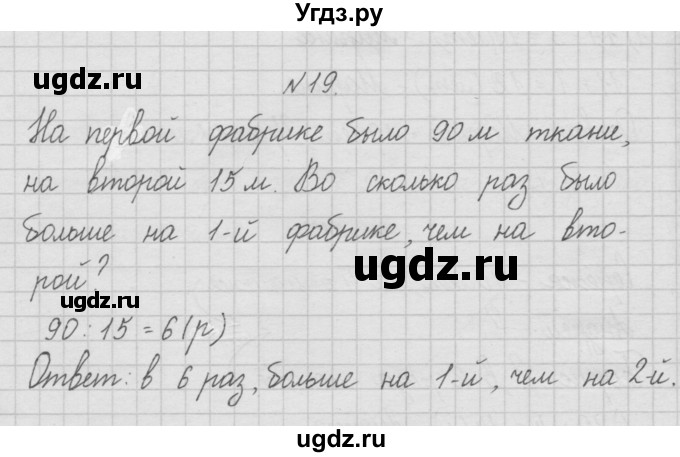 Угдз.ру
ugdz.ru
N 19.
ugdz.ru
На первой фабрике было 90 м ткани,
на второй 15 м. Во сколько раз было
больше на 1-й фабрике, чем на вто-
ugdz.ru
рой?
ugdz.ru
90:15=6(р)
Ответ: в 6 раз, больше на 1-й, чем на 2-й.
ugdz.ru